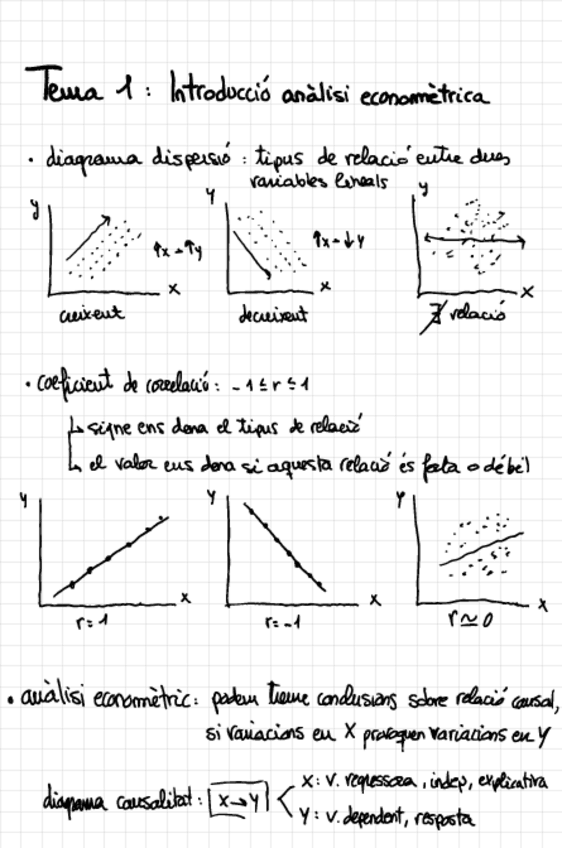 Tema 1 : Introducció anàlisi economètrica
· diagrama dispersió : tipus de relació entre dues
variables lineals
y
x
↑x → ↑y
creixent
y
x
↑x → ↓y
decreixent
y
x
∄ relació
· coeficient de correlació : -1 ≤ r ≤ 1
↳ signe ens dona el tipus de relació
↳ el valor ens dona si aquesta relació és forta o dèbil
y
x
r = 1
y
x
r = -1
y
x
r ≃ 0
· anàlisi economètric : podem treure conclusions sobre relació causal,
si variacions en X provoquen variacions en Y
diagrama causalitat : X → Y
X : v. regressora, indep, explicativa
Y : v. dependent, resposta